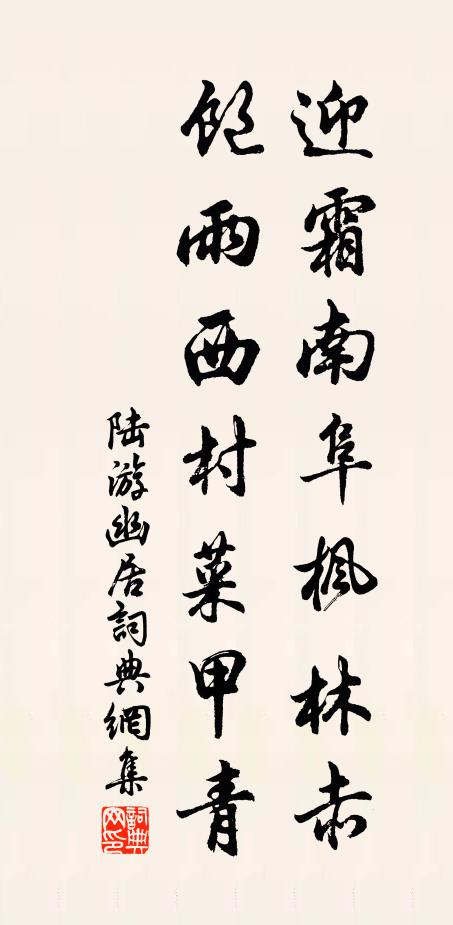 迎霜南阜楓林赤
飽雨西村菜甲青
陆游幽居詞典網集
詞典网印